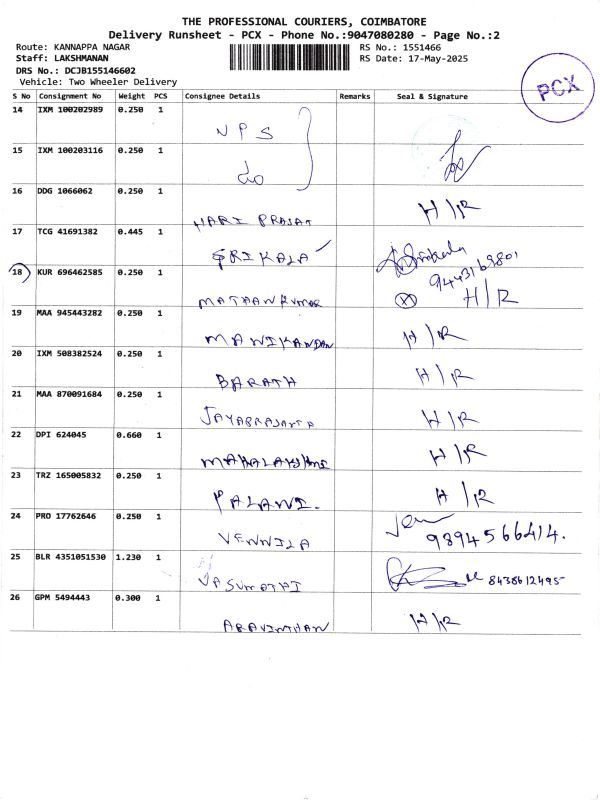 THE PROFESSIONAL COURIERS, COIMBATORE
Delivery Runsheet - PCX - Phone No.:9047080280 - Page No.:2
Route: KANNAPPA NAGAR RS No.: 1551466
Staff: LAKSHMANAN RS Date: 17-May-2025
DRS No.: DCJB155146602
Vehicle: Two Wheeler Delivery
PCX
S No Consignment No Weight PCS Consignee Details Remarks Seal & Signature
14 IXM 100202989 0.250 1
VPS
15 IXM 100203116 0.250 1
do
16 DDG 1066062 0.250 1
HARI PRASAT H/R
17 TCG 41691382 0.445 1
SRIKALA Srikala
9443169801
18 KUR 696462585 0.250 1
MATHANKUMAR X H/R
19 MAA 945443282 0.250 1
MANIKANDAN H/R
20 IXM 508382524 0.250 1
BARATH H/R
21 MAA 870091684 0.250 1
H/R
22 DPI 624045 0.660 1
H/R
23 TRZ 165005832 0.250 1
PALANI. H/R
24 PRO 17762646 0.250 1
VENNILA 9894566414.
25 BLR 4351051530 1.230 1
VASUMATHI 8438612495
26 GPM 5494443 0.300 1
ARAVINTHAN H/R